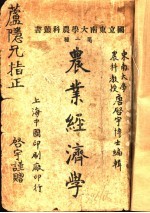 國立東南大學農科叢書
第一種
東南大學
農科教授 唐啓宇博士編輯
農業經濟學
上海中國印刷廠印行
盧隱兄指正
啓宇謹贈